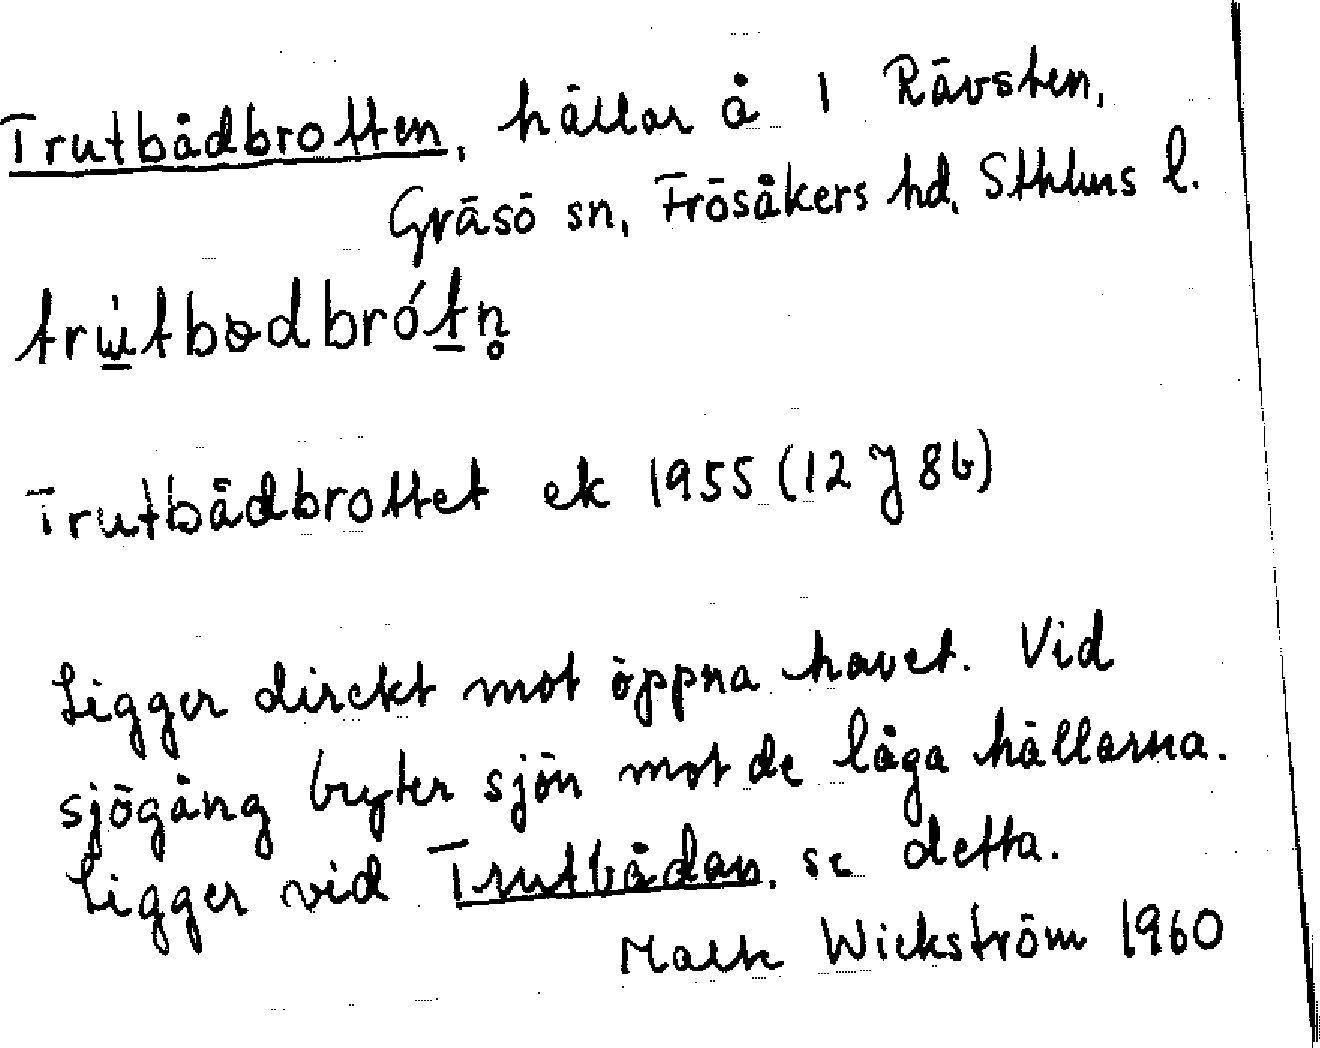 Trutbådbrotten, hällar å 1 Rävsten,
Gräsö sn, Frösåkers hd, Sthlms l.
Trutbådbrottet ek 1955 (12 J 8b)
Ligger direkt mot öppna havet. Vid
sjögång bryter sjön mot de låga hällarna.
Ligger vid Trutbådan, se detta.
Malte Wickström 1960